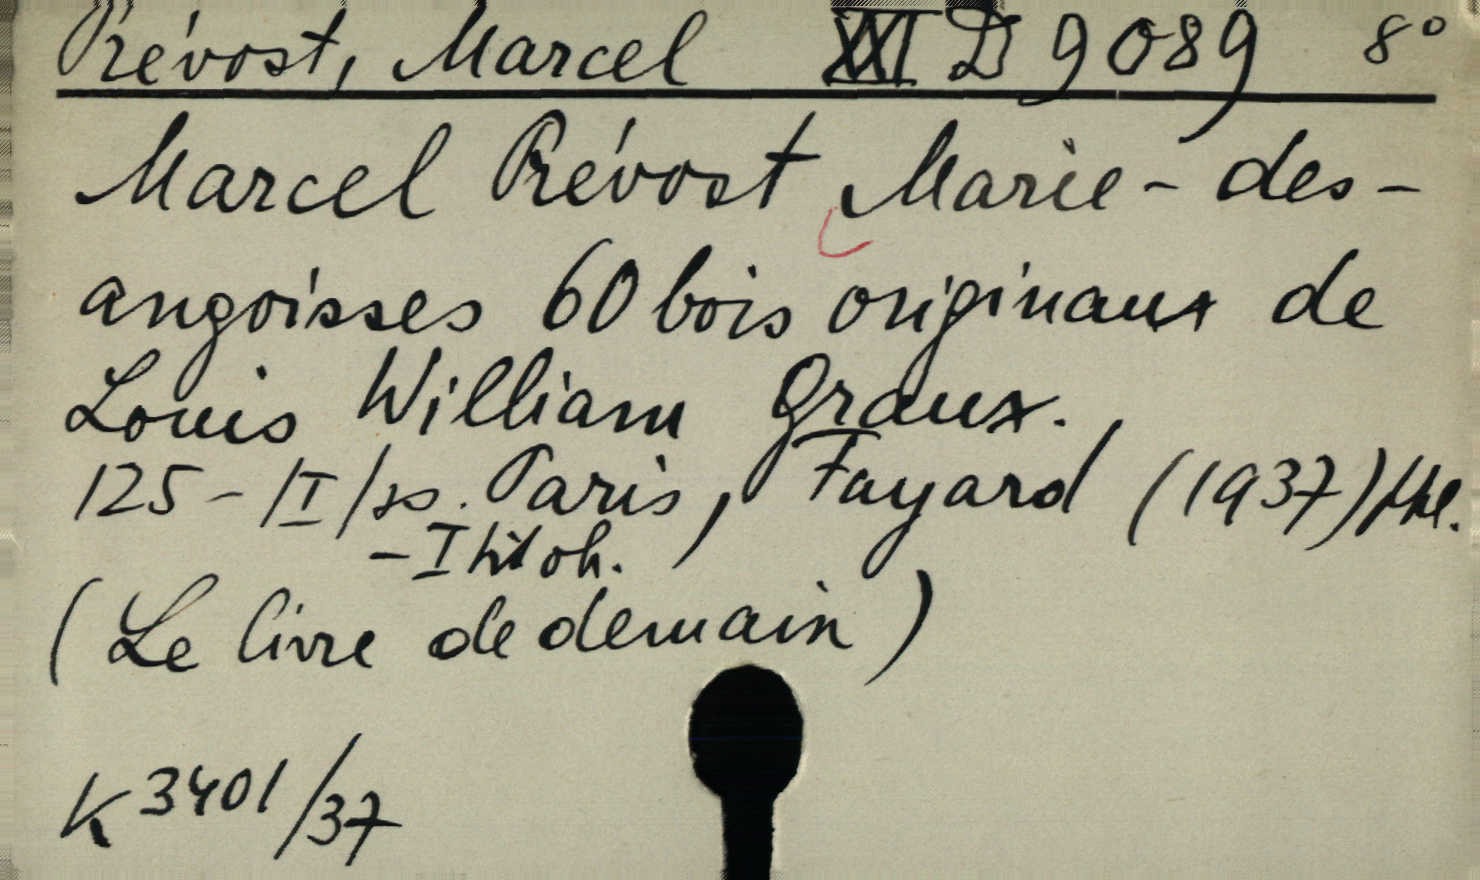 Prévost, Marcel XXI D 9089 8°
Marcel Prévost Marie-des-
angoisses 60 bois originaux de
Louis William Graux.
125-/I/ss. Paris, Fayard (1937)
-I titoh.
(Le livre de demain)
K 3401/37